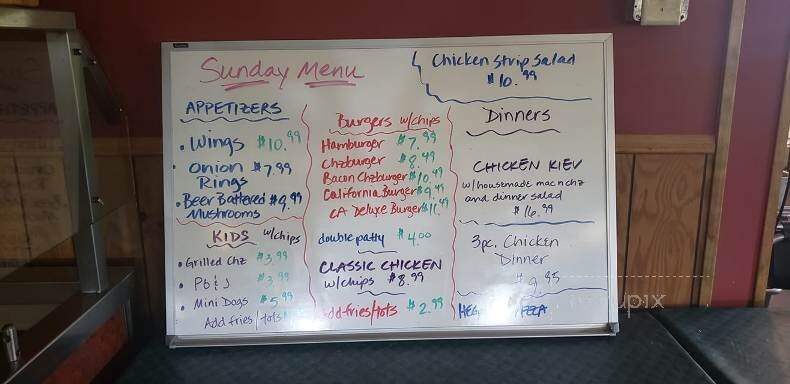 Sunday Menu
APPETIZERS
• Wings $10.99
• Onion $7.99
Rings
• Beer Battered $9.99
Mushrooms
KIDS w/chips
• Grilled Chz $3.99
• Pb & J $3.99
• Mini Dogs $5.99
Add fries/tots
Burgers w/chips
Hamburger $7.99
Chzburger $8.49
Bacon Chzburger $10.49
California Burger $9.49
CA Deluxe Burger $11.49
double patty $4.00
CLASSIC CHICKEN
w/chips $8.99
Add fries/tots $2.99
Chicken Strip Salad
$10.99
Dinners
CHICKEN KIEV
w/housemade mac n chz
and dinner salad
$16.99
3pc. Chicken
Dinner
$9.95